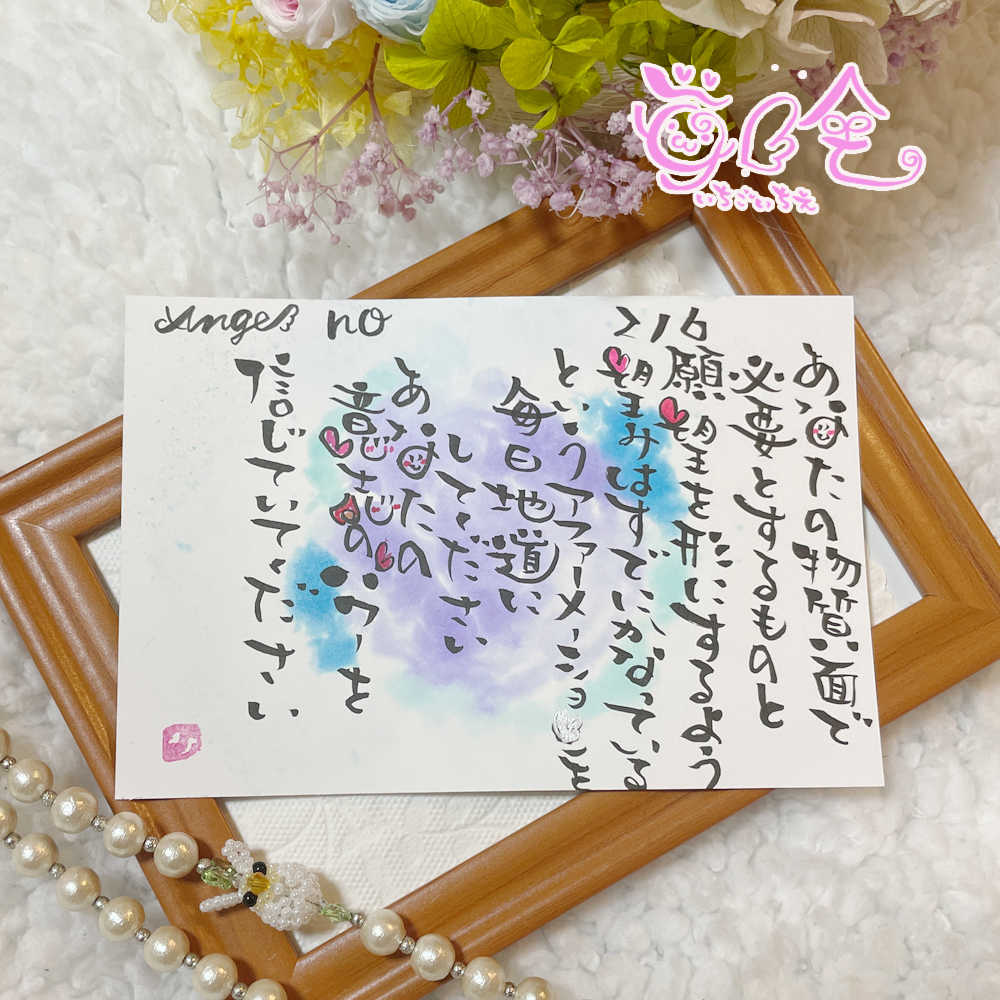 Angel no
216
あなたの物質面で
必要とするものと
願望を形にするよう
望みはすでにかなっている
というアファーメーションを
毎日地道に
してください
あなたの
意志の
パワーを
信じていてください
いちごいちえ